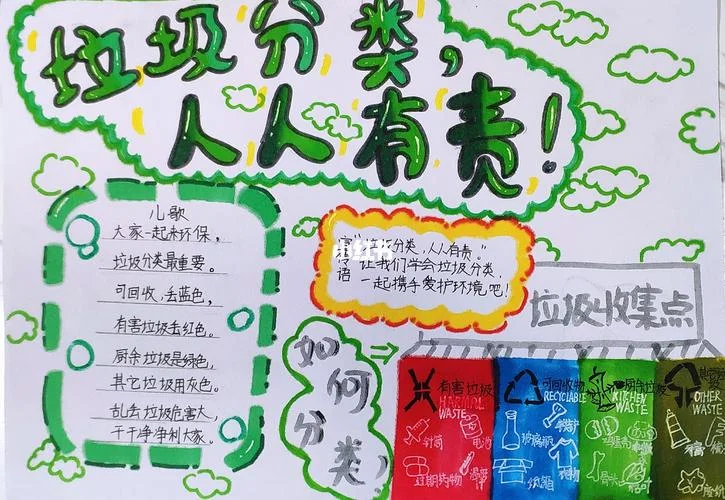 垃圾分类，
人人有责！
儿歌
大家一起来环保，
垃圾分类最重要。
可回收，丢蓝色，
有害垃圾丢红色。
厨余垃圾是绿色，
其它垃圾用灰色。
乱丢垃圾危害大，
干干净净利大家。
垃圾分类，人人有责。"
让我们学会垃圾分类，
一起携手爱护环境吧！
如何分类
垃圾收集点
有害垃圾
HARMFUL
WASTE
针筒
电池
过期药物
可回收物
RECYCLABLE
玻璃瓶
衣物
纸箱
厨余垃圾
KITCHEN
WASTE
鸡蛋壳
骨头
OTHER
WASTE